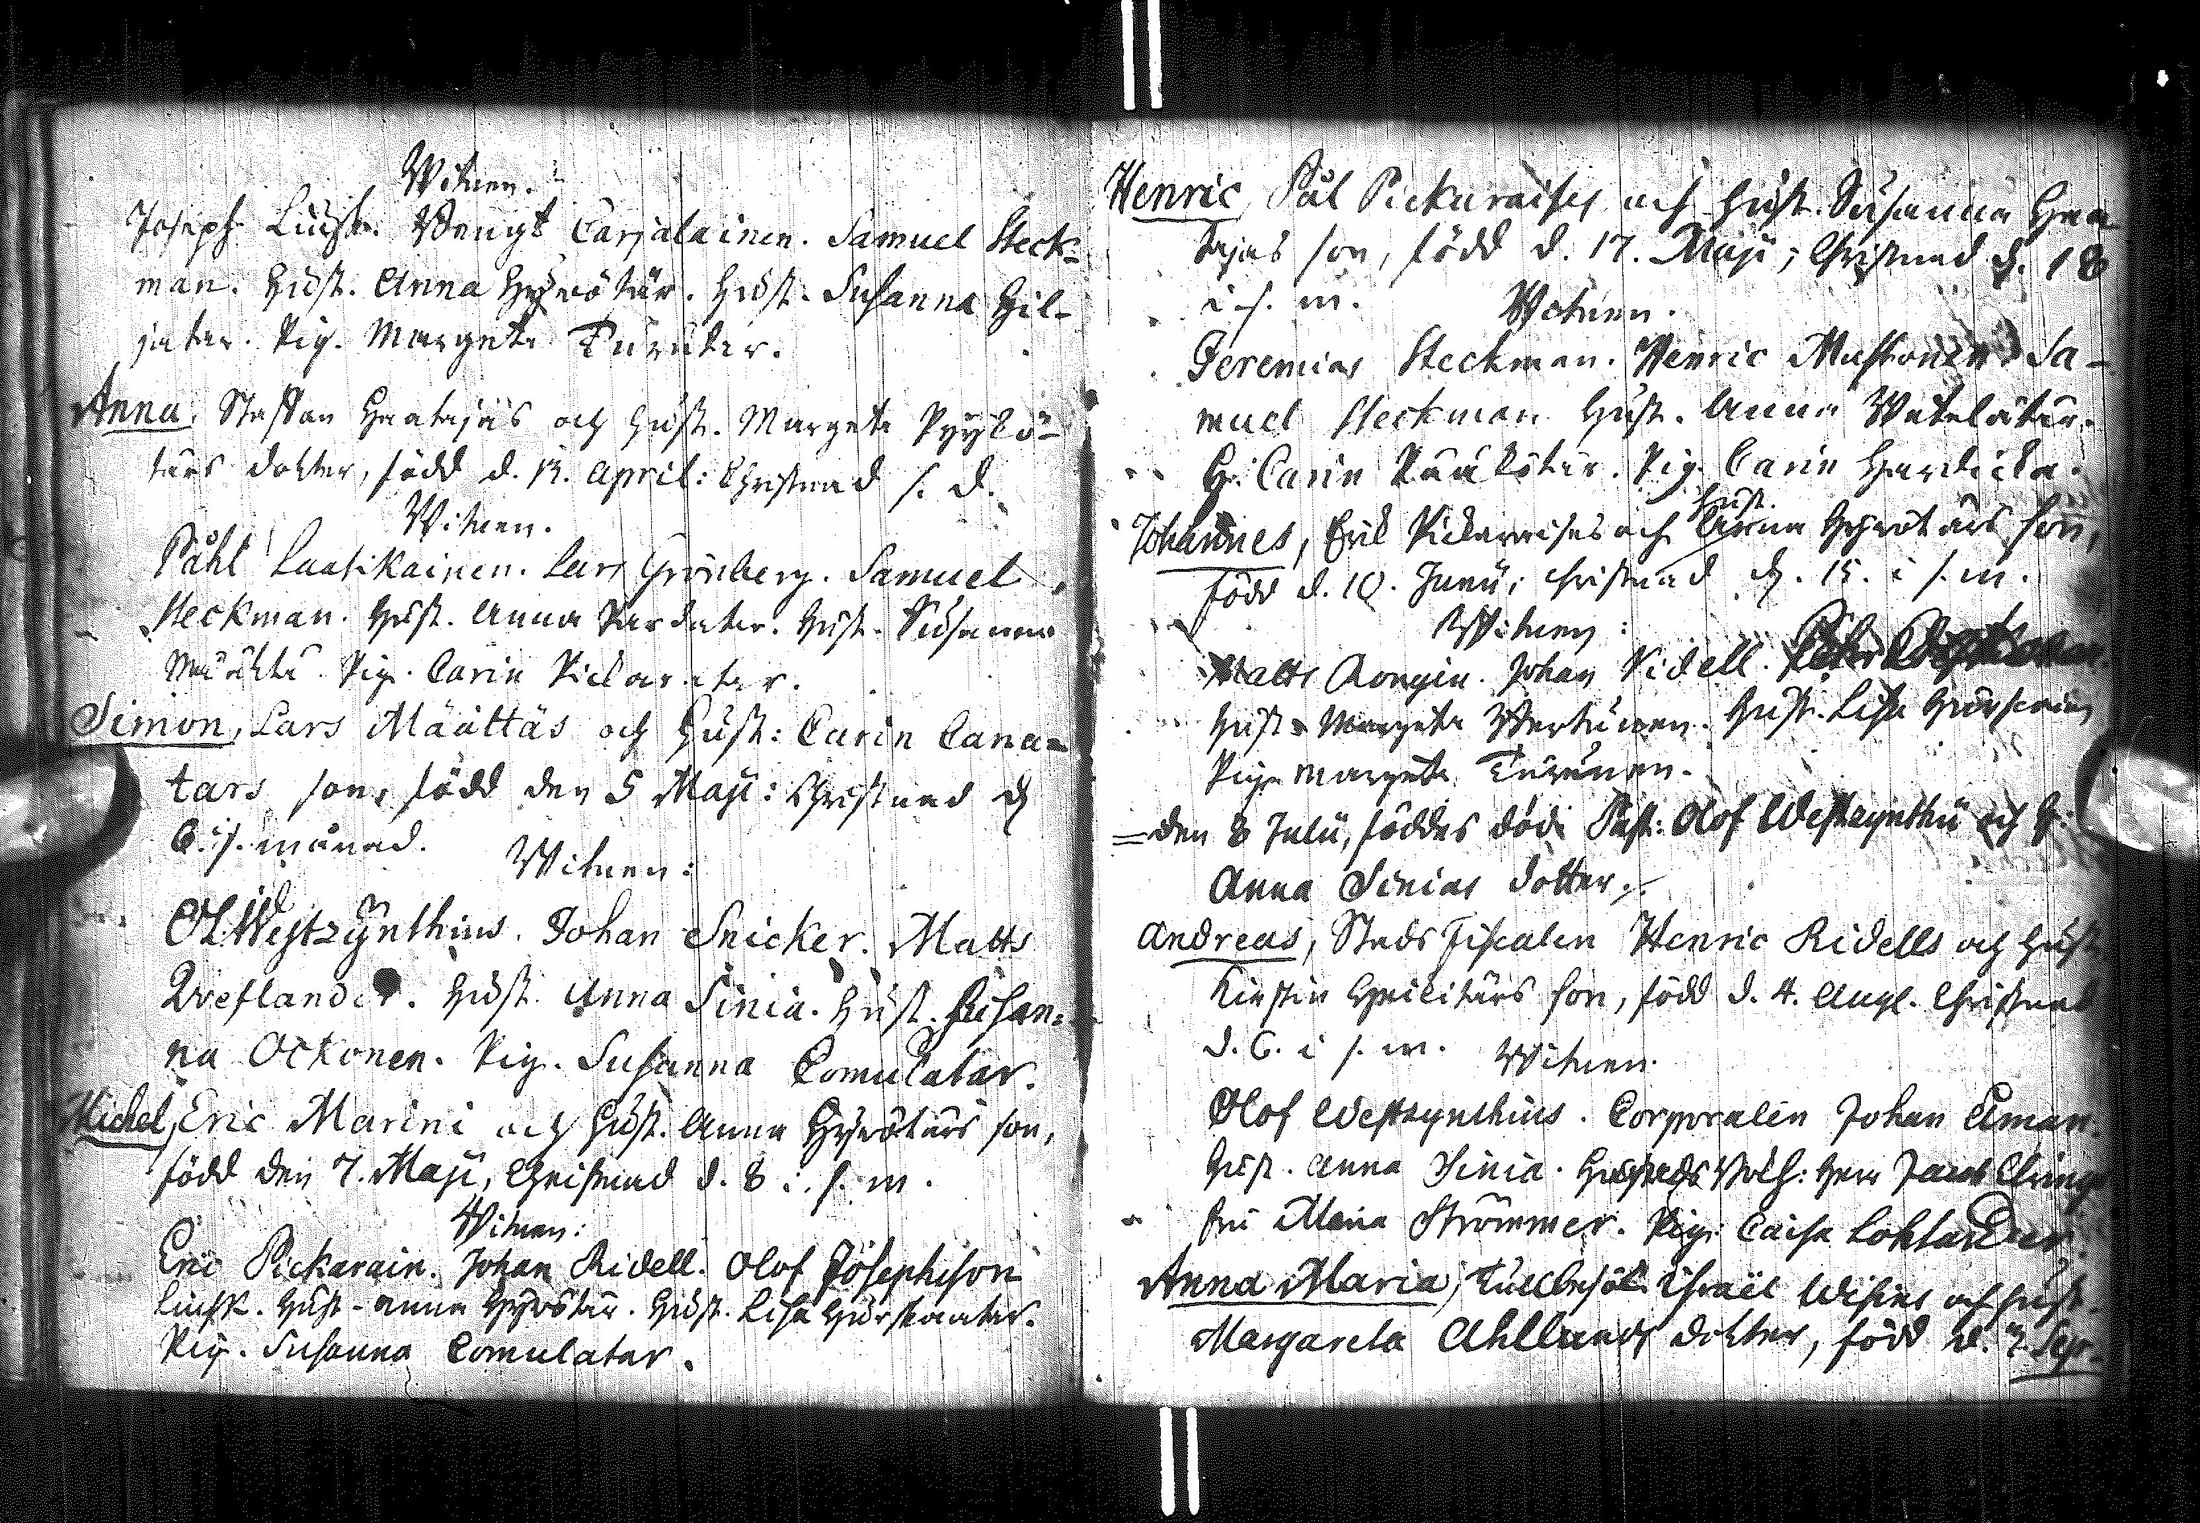 Witnen.
Joseph Bengt Carjalainen. Samuel Steck=
man. Hust. Anna Hyvötär. Hust. Susanna Hil-
jatar. Pig. Margeta Turutar.
Anna, Staffan Haatajas och Hust. Margeta Pyylö-
tärs dotter, född d. 13. April: Christnad s. d.
Witnen.
Påhl Laatikainen. Lars Grönberg. Samuel
Steckman. Hust. Anna Hust. Susanna
Pig. Carin Pickaratar.
Simon, Lars Määttäs och Hust: Carin Cana=
tars son, född den 5 Maji: Christnad d
6. i s. månad.
Witnen:
Ol Westzynthius. Johan Snicker. Matts
Hust. Anna Sinia. Hust. Susan=
na Ockonen. Pig. Susanna Comulatar.
Michel, Eric Marini och Hust. Anna Hyvötärs son,
född den 7. Maji, Christnad d. 8 i s. m.
Witnen:
Eric Pickarain. Johan Ridell. Olof Josephson
Hust. Anna Hyvötär. Hust. Lisa
Pig. Susanna Comulatar.
Henric, Pål Pickaraises och Hust. Susanna Haa
tajas son, född d. 17. Maji; Christnad d. 18
i s. m.
Witnen.
Jeremias Steckman. Henric Mustonen. Sa-
muel Steckman Hust. Anna
H. Carin Pig. Carin
Johannes, Erik Pickaraises och Hust. Anna Hyvötärs son,
född d. 10. Junii; Christnad d. 15. i s. m.
Witnen:
Matts Johan Ridell.
Hust. Margeta Hust. Lisa
Pig. Margeta Turunen.
den 8 Julii, föddes död Past: Olof Westzynthii och H:
Anna Sinias dotter.
Andreas, Stads Fiscalen Henric Ridells och Hust
Kirstin son, född d. 4. Aug. Christnad
d. 6. i s. m. Witnen.
Olof Westzynthius. Corporalen Johan
Hust. Anna Sinia. Herr Jacob
Fru Maria Strömmer. Pig. Caisa
Anna Maria, Israel och Hust.
Margareta Ahllunds dotter, född d. 7. Sept.